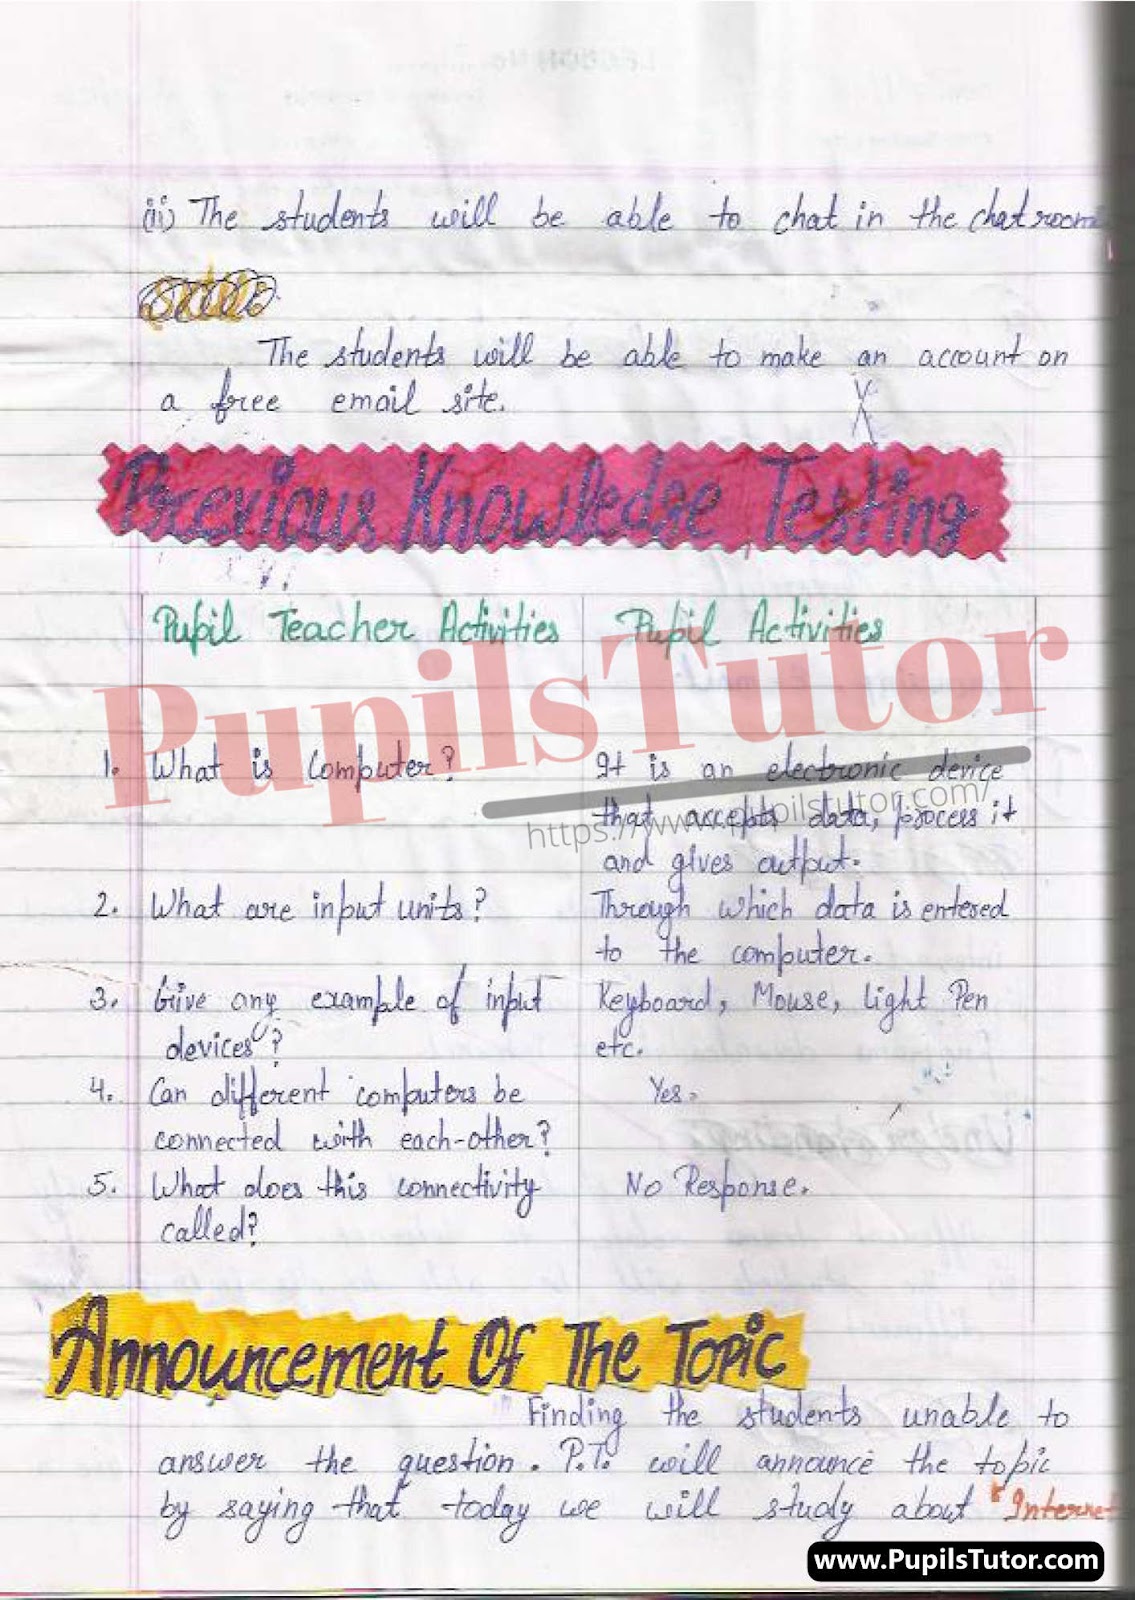 (ii) The students will be able to chat in the chat room
The students will be able to make an account on
a free email site.
Previous Knowledge Testing
Pupil Teacher Activities Pupil Activities
PupilsTutor
https://www.pupilstutor.com/
1. What is Computer? It is an electronic device
that accepts data, process it
and gives output.
2. What are input units? Through which data is entered
to the computer.
3. Give any example of input Keyboard, Mouse, Light Pen
devices? etc.
4. Can different computers be Yes.
connected with each-other?
5. What does this connectivity No Response.
called?
Announcement Of The Topic
Finding the students unable to
answer the question. P.T. will announce the topic
by saying that today we will study about "Internet
www.PupilsTutor.com